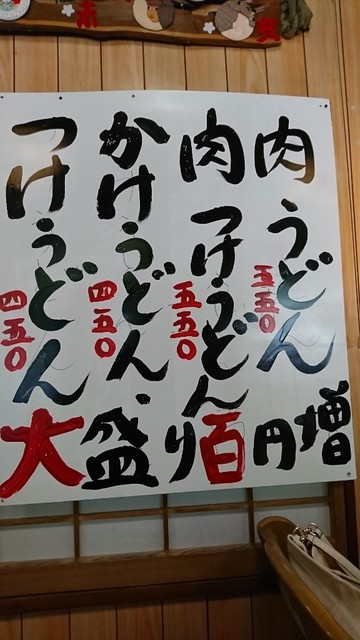 肉うどん
五五〇
肉つけうどん
五五〇
かけうどん
四五〇
つけうどん
四五〇
大盛り百円増